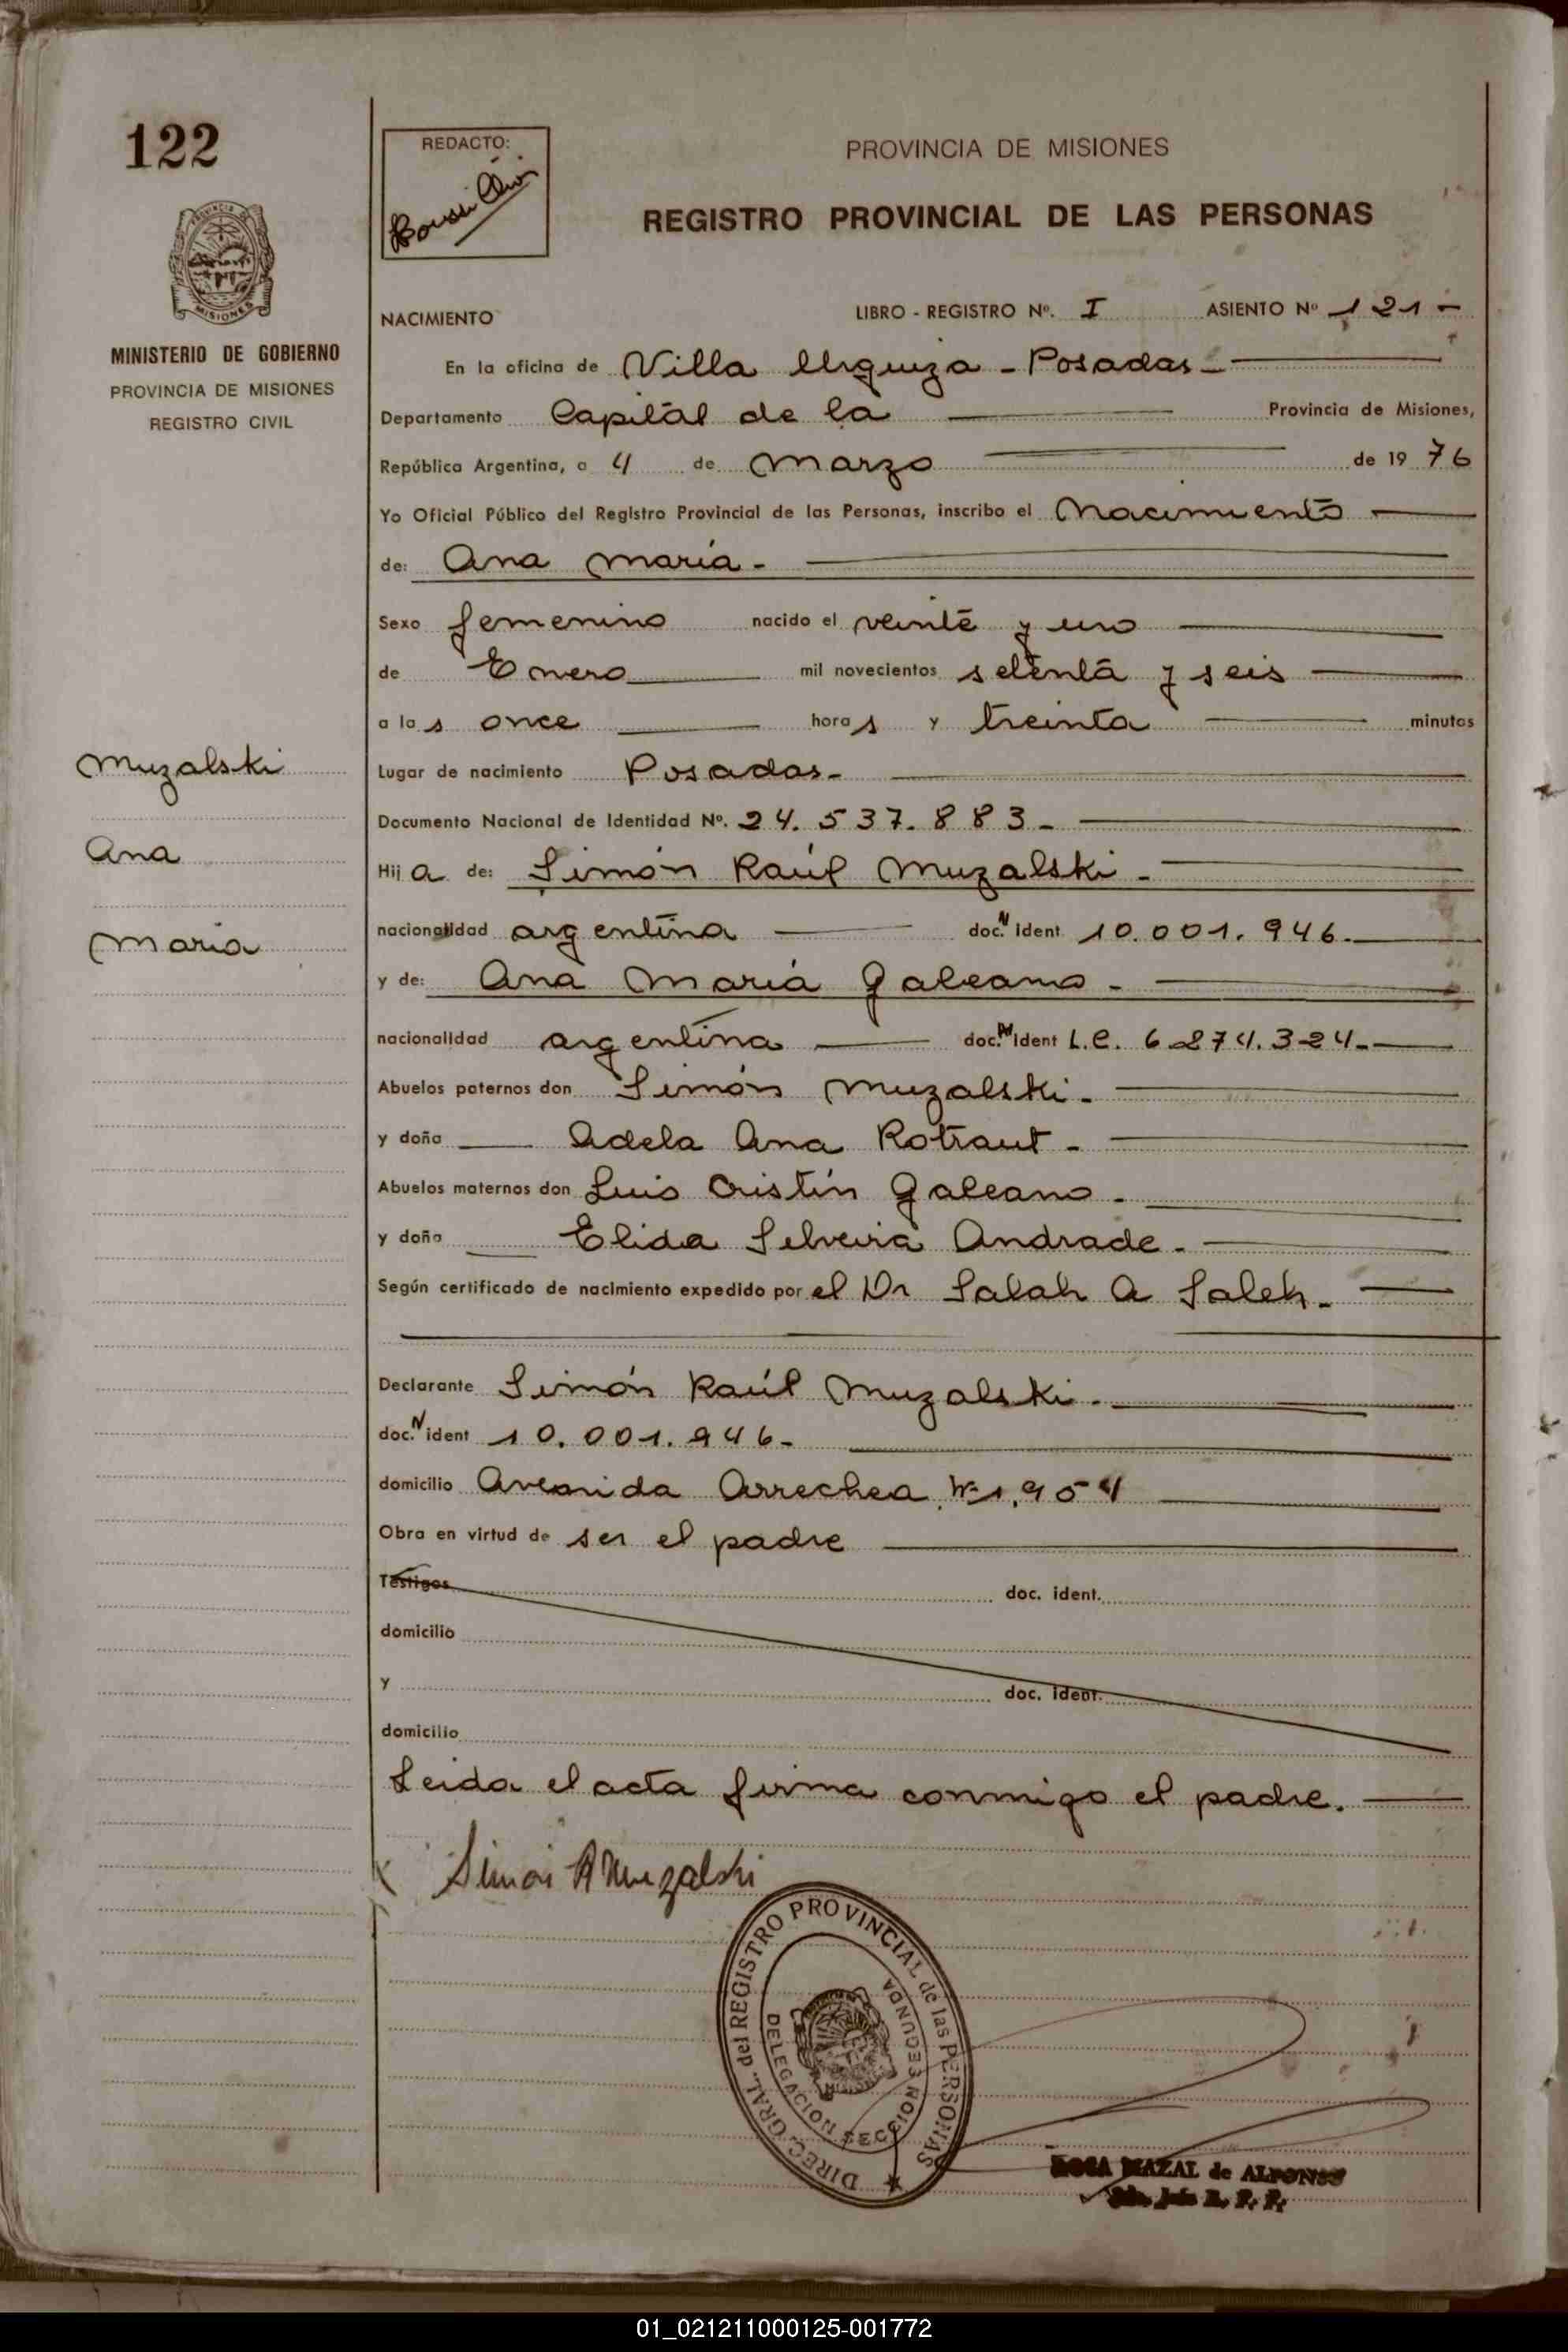 122
REDACTO:
PROVINCIA DE MISIONES
REGISTRO PROVINCIAL DE LAS PERSONAS
MISIONES
MINISTERIO DE GOBIERNO
PROVINCIA DE MISIONES
REGISTRO CIVIL
NACIMIENTO LIBRO - REGISTRO Nº. I ASIENTO Nº 121 -
En la oficina de Villa Urquiza - Posadas -
Departamento Capital de la Provincia de Misiones,
República Argentina, a 4 de Marzo de 1976
Yo Oficial Público del Registro Provincial de las Personas, inscribo el Nacimiento
de: Ana María -
Sexo femenino nacido el veinte y uno
de Enero mil novecientos setenta y seis
a las once horas y treinta minutos
Muzalski
Ana
María
Lugar de nacimiento Posadas -
Documento Nacional de Identidad Nº. 24.537.883 -
Hija de: Simón Raúl Muzalski -
nacionalidad argentina doc. N ident 10.001.946 -
y de: Ana María Galeano -
nacionalidad argentina doc. Nº ident L.C. 6.274.324 -
Abuelos paternos don Simón Muzalski -
y doña Adela Ana Rotraut -
Abuelos maternos don Luis Cristín Galeano -
y doña Elida Silveira Andrade -
Según certificado de nacimiento expedido por el Dr Salah A Saleh -
Declarante Simón Raúl Muzalski -
doc. N ident 10.001.946 -
domicilio Avenida Arrechea Nº 1.954
Obra en virtud de ser el padre
Testigos doc. ident.
domicilio
y doc. ident.
domicilio
Leida el acta firma conmigo el padre.
Simón R Muzalski
DIREC. GRAL. del REGISTRO PROVINCIAL de las PERSONAS
DELEGACION SECCION SEGUNDA
ROSA MAZAL de ALFONSO
01_021211000125-001772